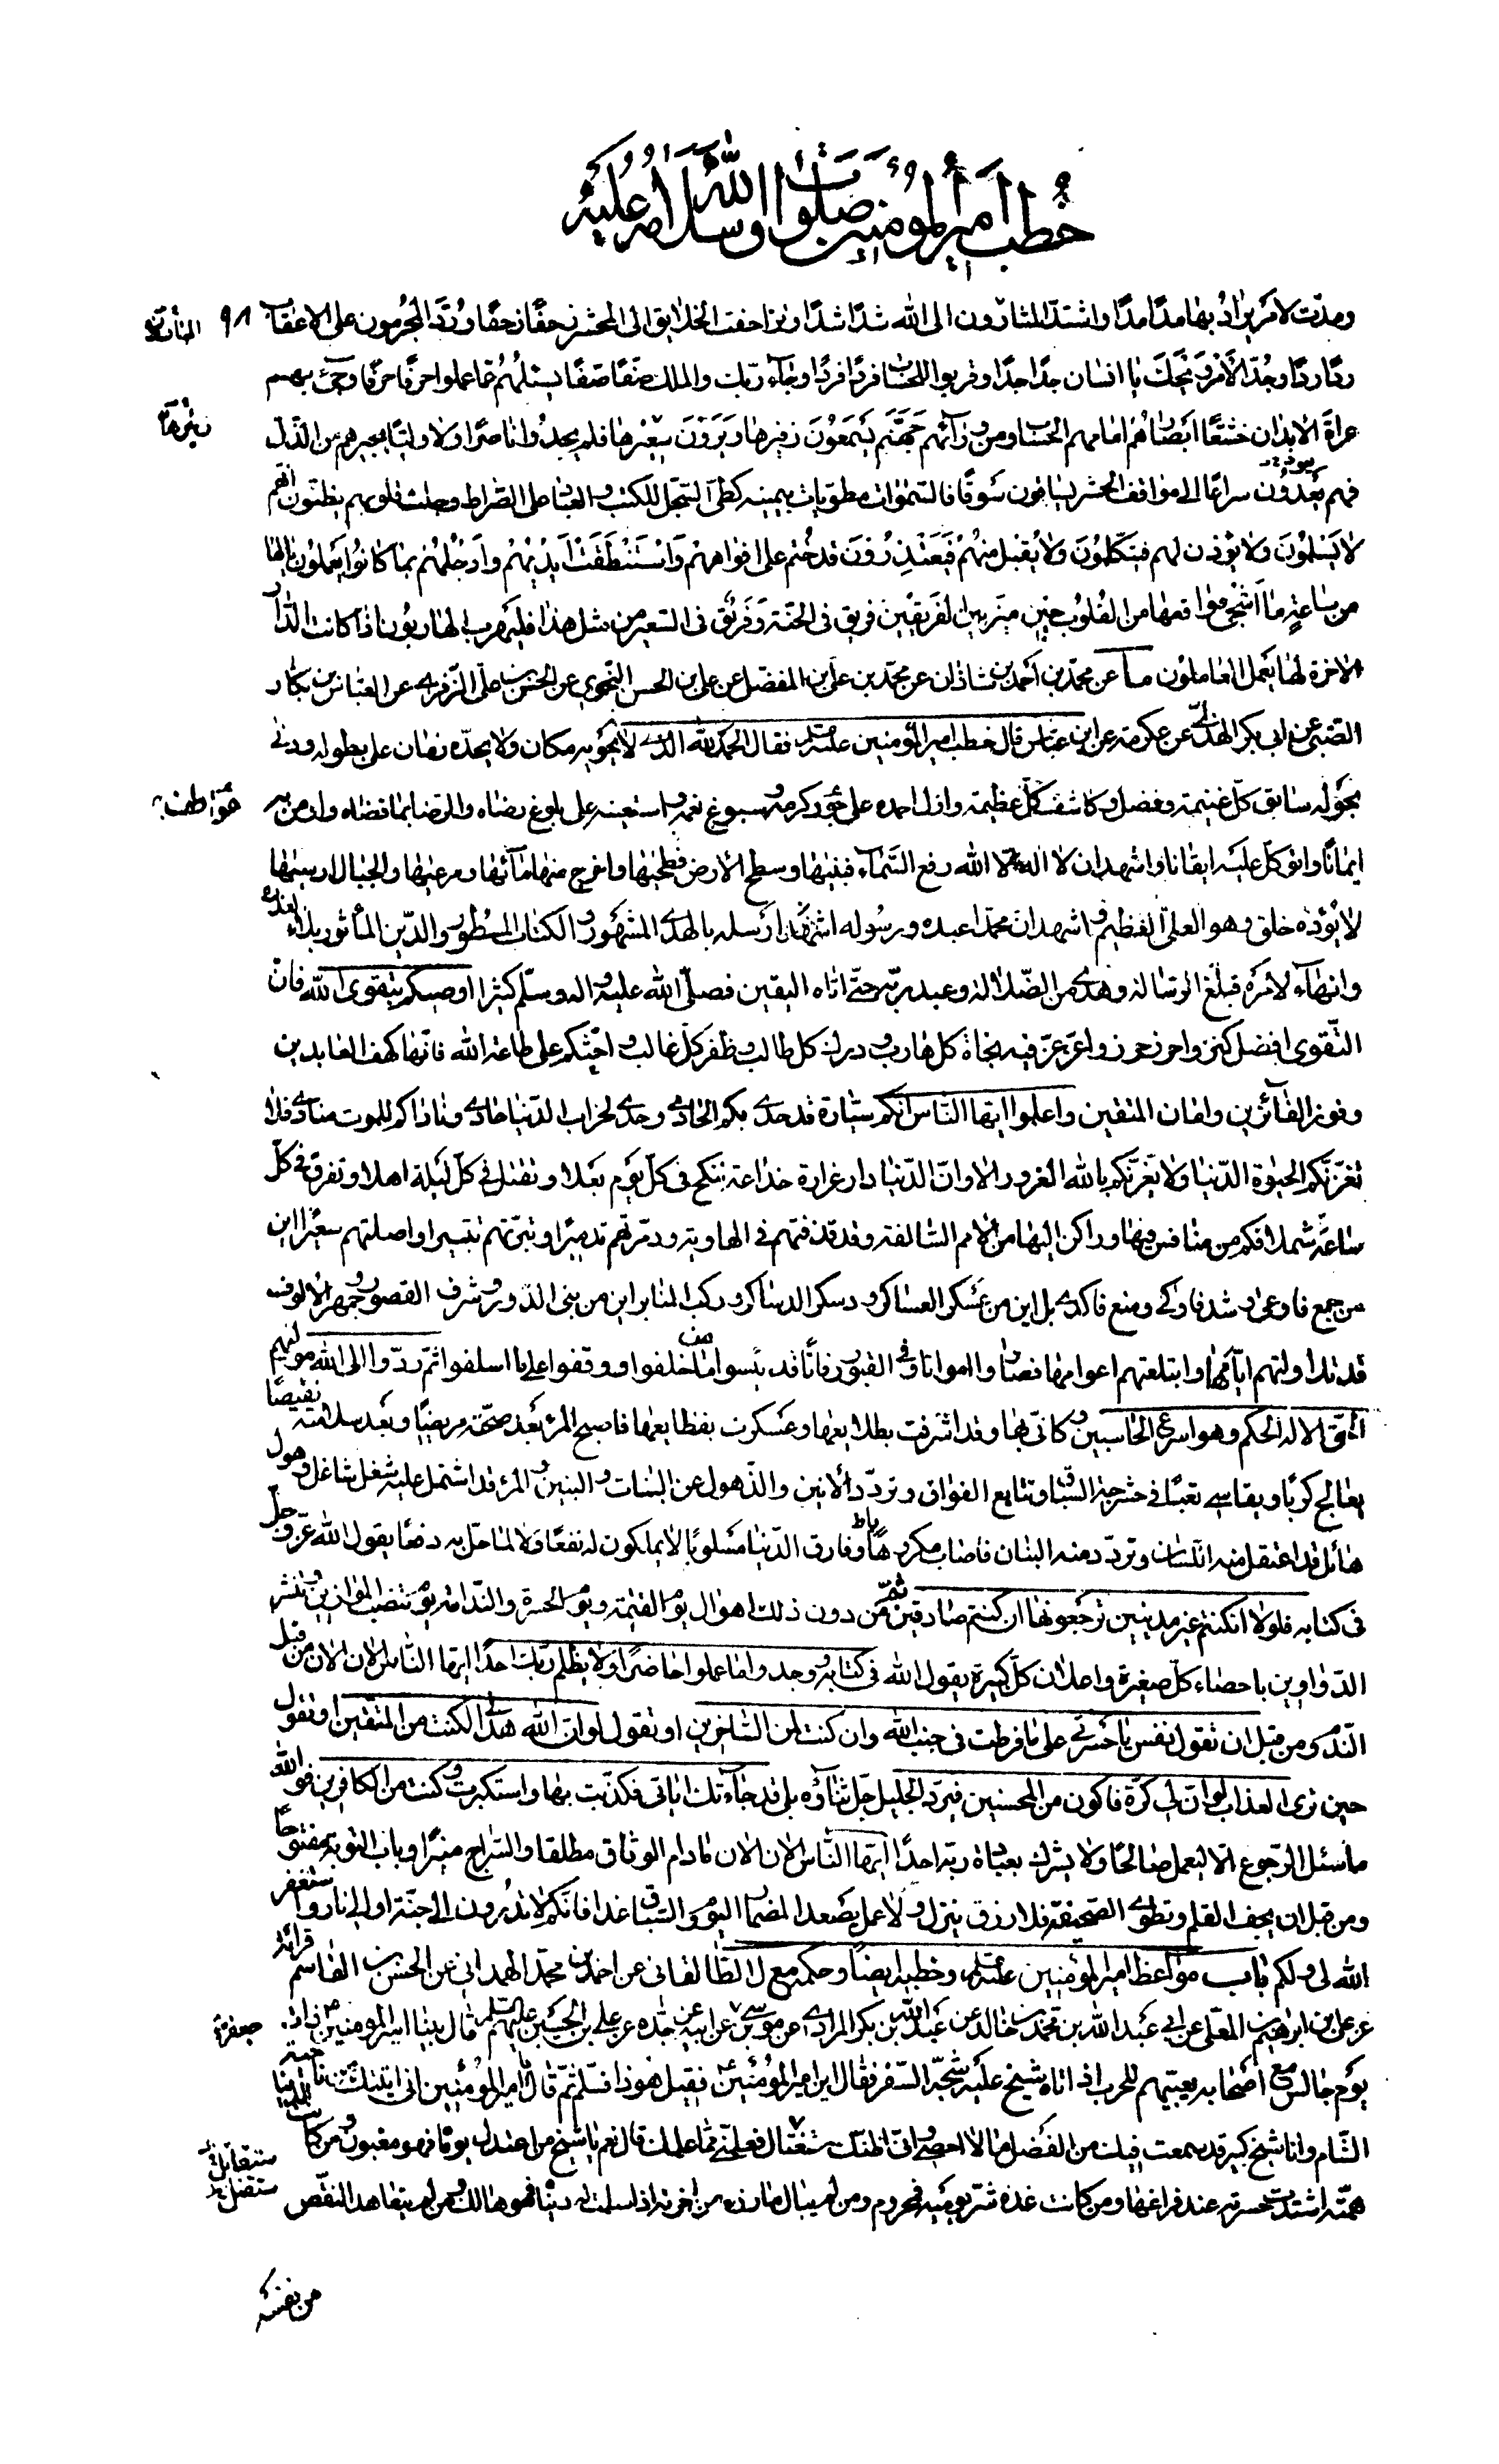 خُطب أمير المؤمنين صلوات الله وسلامه عليه
ومدّت لامر يراد بها مدا مدا واشتدّ المشارون الى الله شدا شدا وتزاحفت الخلايق الى المحشر زحفا زحفا وردّ المجرمون على الاعقاب ٩٨
ردا ردا وجدّ الأمر ويحك يا انسان جدا جدا وقربوا للحساب فردا فردا وجاء ربك والملك صفا صفا يسئلهم عما عملوا حرفا حرفا وجئ بهم
عراة الابدان خشعا ابصارهم امامهم الحساب ومن ورآئهم جهنم يسمعون زفيرها ويرون سعيرها فلم يجدوا ناصرا ولا وليا يجيرهم من الذل
فهم يعدون سراعا الى مواقف الحشر يساقون سوقا فالسموات مطويات بيمينه كطي السجل للكتب والعباد على الصراط وجلت قلوبهم يظنون انهم
لا يسلمون ولا يؤذن لهم فيتكلمون ولا يقبل منهم فيعتذرون قد ختم على افواههم واستنطقت ايديهم وارجلهم بما كانوا يعملون يا لها
من ساعة ما اشجى مواقعها من القلوب حين ميز بين الفريقين فريق في الجنة وفريق في السعير من مثل هذا فليهرب الهاربون اذا كانت الدار
الاخرة لها يعمل العاملون ما عن محمد بن احمد بن شاذان عن محمد بن علي بن المفضل عن علي بن الحسن النحوي عن الحسن بن علي الزفري عن العباس بن بكار
الضبي عن ابي بكر الهذلي عن عكرمة عن ابن عباس قال خطب امير المؤمنين عليه السلم فقال الحمد لله الذي لا يحويه مكان ولا يحده زمان علا بطوله ودنى
بحوله سابق كل غنيمة وفضل وكاشف كل عظيمة وازل احمده على جود كرمه وسبوغ نعمه واستعينه على بلوغ رضاه والرضا بما قضاه واومن به
ايمانا واتوكل عليه ايقانا واشهد ان لا اله الا الله رفع السماء فبنيها وسطح الأرض فطحيها واخرج منها مآئها ومرعيها والجبال ارسيها
لا يؤده خلق وهو العلي العظيم واشهد ان محمدا عبده ورسوله ارسله بالهدى المشهور والكتاب المسطور والدين المأثور ابلاء لعذره
وانهآء لامره فبلغ الرسالة وهدى من الضلالة وعبد ربه حتى اتاه اليقين فصلى الله عليه واله وسلم كثيرا اوصيكم بتقوى الله فان
التقوى افضل كنز واحرز حرز واعز عز فيه نجاة كل هارب ودرك كل طالب وظفر كل غالب واحثكم على طاعة الله فانها كهف العابدين
وفوز الفائزين وامان المتقين واعلموا ايها الناس انكم سيارة قد حدى بكم الحادي وحدى لخراب الدنيا حادى وناداكم للموت منادى فلا
تغرنكم الحيوة الدنيا ولا يغرنكم بالله الغرور الا وان الدنيا دار غرارة خداعة تنكح في كل يوم بعلا وتقتل في كل ليلة اهلا وتفرق في كل
ساعة شملا فكم من منافس فيها وراكن اليها من الامم السالفة وقد قذفتهم في الهاوية ودمرتهم تدميرا وتبرتهم تتبيرا واصلتهم سعيرا اين
من جمع فاوعى وشد فاوكى ومنع فاكدى بل اين من عسكر العساكر ودسكر الدساكر وركب المنابر اين من بنى الدور وشرف القصور وجمهر الالوف
قد تداولتهم ايامها وابتلعتهم اعوامها فصاروا امواتا وفي القبور رفاتا قد يئسوا ما خلفوا ووقفوا على ما اسلفوا ثم ردوا الى الله موليهم
الحق الا له الحكم وهو اسرع الحاسبين وكاني بها وقد اشرفت بطلايعها وعسكرت بفظايعها فاصبح المرء بعد صحته مريضا وبعد سلامته نقيصا
يعالج كربا ويقاسي تعبا في حشرجة السباق وتتابع الفواق وتردد الانين والذهول عن البنات والبنين والمرء قد اشتمل عليه شغل شاغل وهول
هائل قد اعتقل منه اللسان وتردد منه البنان فاصاب مكروها وفارق الدنيا مسلوبا لا يملكون له نفعا ولا لما حل به دفعا يقول الله عز وجل
في كتابه فلولا ان كنتم غير مدينين ترجعونها ان كنتم صادقين ثم من دون ذلك اهوال يوم القيمة ويوم الحسرة والندامة يوم تنصب الموازين وتنشر
الدواوين باحصاء كل صغيرة واعلان كل كبيرة يقول الله في كتابه ووجدوا ما عملوا حاضرا ولا يظلم ربك احدا ايها الناس الان الان من قبل
الندم ومن قبل ان تقول نفس يا حسرتي على ما فرطت في جنب الله وان كنت لمن الساخرين او تقول لو ان الله هداني لكنت من المتقين او تقول
حين ترى العذاب لو ان لي كرة فاكون من المحسنين فيرد الجليل جل ثناؤه بلى قد جآءتك اياتي فكذبت بها واستكبرت وكنت من الكافرين فوالله
ما سئل الرجوع الا ليعمل صالحا ولا يشرك بعبادة ربه احدا ايها الناس الان الان ما دام الوثاق مطلقا والسراج منيرا وباب التوبة مفتوحا
ومن قبل ان يجف القلم وتطوى الصحيفة فلا رزق ينزل ولا عمل يصعد المضمار اليوم والسباق غدا فانكم لا تدرون الى جنة او الى نار واستغفر
الله لي ولكم باب مواعظ امير المؤمنين عليه السلم وخطبه ايضا وحكمه مع ل الطالقاني عن احمد بن محمد الهمداني عن الحسن بن القاسم قرائة
عن علي بن ابرهيم بن المعلى عن ابي عبد الله بن محمد بن خالد عن عبد الله بن بكر المرادي عن موسى بن عن ابيه عن جده عن علي بن الحسين عليهم السلم قال بينا امير المؤمنين ذات جعفر
يوم جالس مع اصحابه يعبيهم للحرب اذ اتاه شيخ عليه شحبة السفر فقال اين امير المؤمنين فقيل هو ذا فسلم ثم قال يا امير المؤمنين اني اتيتك من ناحية
الشام وانا شيخ كبير قد سمعت فيك من الفضل ما لا احصي واني اظنك ستغتال فعلمني مما علمك قال نعم يا شيخ من اعتدل يوماه فهو مغبون ومن كانت الدنيا
همته اشتدت حسرته عند فراغها ومن كانت غده شر يوميه فمحروم ومن لم يبال ما رزء من اخرته اذا سلمت له دنياه فهو هالك ومن لم يتعاهد النقص
من نفسه